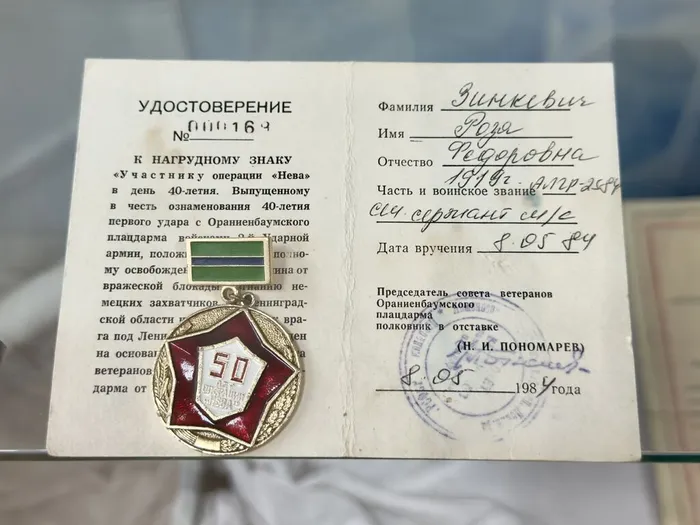 УДОСТОВЕРЕНИЕ
№ 000169
К НАГРУДНОМУ ЗНАКУ
«Участнику операции «Нева»
в день 40-летия. Выпущенному
в честь ознаменования 40-летия
первого удара с Ораниенбаумского
плацдарма войсками 2-й Ударной
армии, полож
му освобожден
вражеской блокады
немецких захватчиков
ской области
га под Лени
на основа
ветеранов
дарма от
50
ЛЕТ
Фамилия Зинкевич
Имя Роза
Отчество Федоровна
1919г.
Часть и воинское звание
ст. сержант м/с
Дата вручения 8.05 84
Председатель совета ветеранов
Ораниенбаумского
плацдарма
полковник в отставке
(Н. И. ПОНОМАРЕВ)
8.05 1984 года